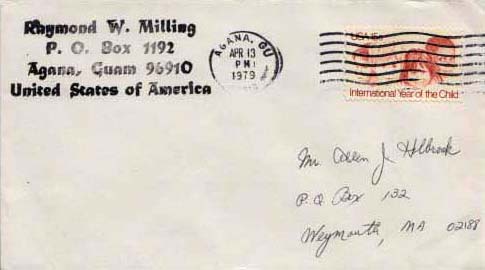 Raymond W. Milling
P. O. Box 1192
Agana, Guam 96910
United States of America
AGANA, GU
APR 13
PM
1979
USA 15c
International Year of the Child
Mr. Allen J. Holbrook
P.O. Box 132
Weymouth, MA 02188